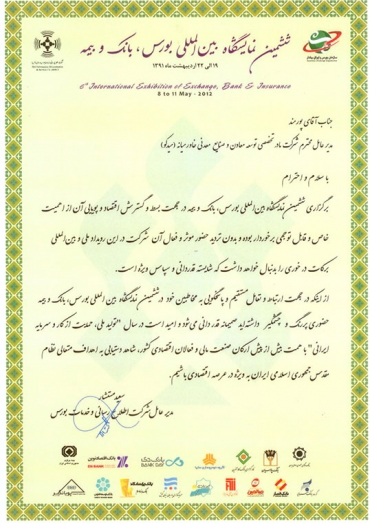 ششمین نمایشگاه بین‌المللی بورس، بانک و بیمه
۱۹ الی ۲۲ اردیبهشت ماه ۱۳۹۱
6th International Exhibition of Exchange, Bank & Insurance
8 to 11 May - 2012
جناب آقای پورمند
مدیر عامل محترم شرکت مادر تخصصی توسعه معادن و صنایع معدنی خاورمیانه (میدکو)
با سلام و احترام
برگزاری ششمین نمایشگاه بین‌المللی بورس، بانک و بیمه در جهت بسط و گسترش اقتصاد و پویایی آن از اهمیت
خاص و قابل توجهی برخوردار بوده و بدون تردید حضور موثر و فعال آن شرکت در این رویداد ملی و بین‌المللی
برکات در خوری را بدنبال خواهد داشت که شایسته قدردانی و سپاس ویژه است.
از اینکه در جهت ارتباط و تعامل مستقیم و پاسخگویی به مخاطبین خود در ششمین نمایشگاه بین‌المللی بورس، بانک و بیمه
حضوری پررنگ و چشمگیر داشته‌اید صمیمانه قدردانی می‌شود و امید است در سال "تولید ملی، حمایت از کار و سرمایه
ایرانی" با همت بیش از پیش ارکان صنعت مالی و فعالان اقتصادی کشور، شاهد دستیابی به اهداف متعالی نظام
مقدس جمهوری اسلامی ایران به ویژه در عرصه اقتصادی باشیم.
سعید مستشار
مدیر عامل شرکت اطلاع رسانی و خدمات بورس
بانک اقتصاد نوین
بانک دی
BANK DAY